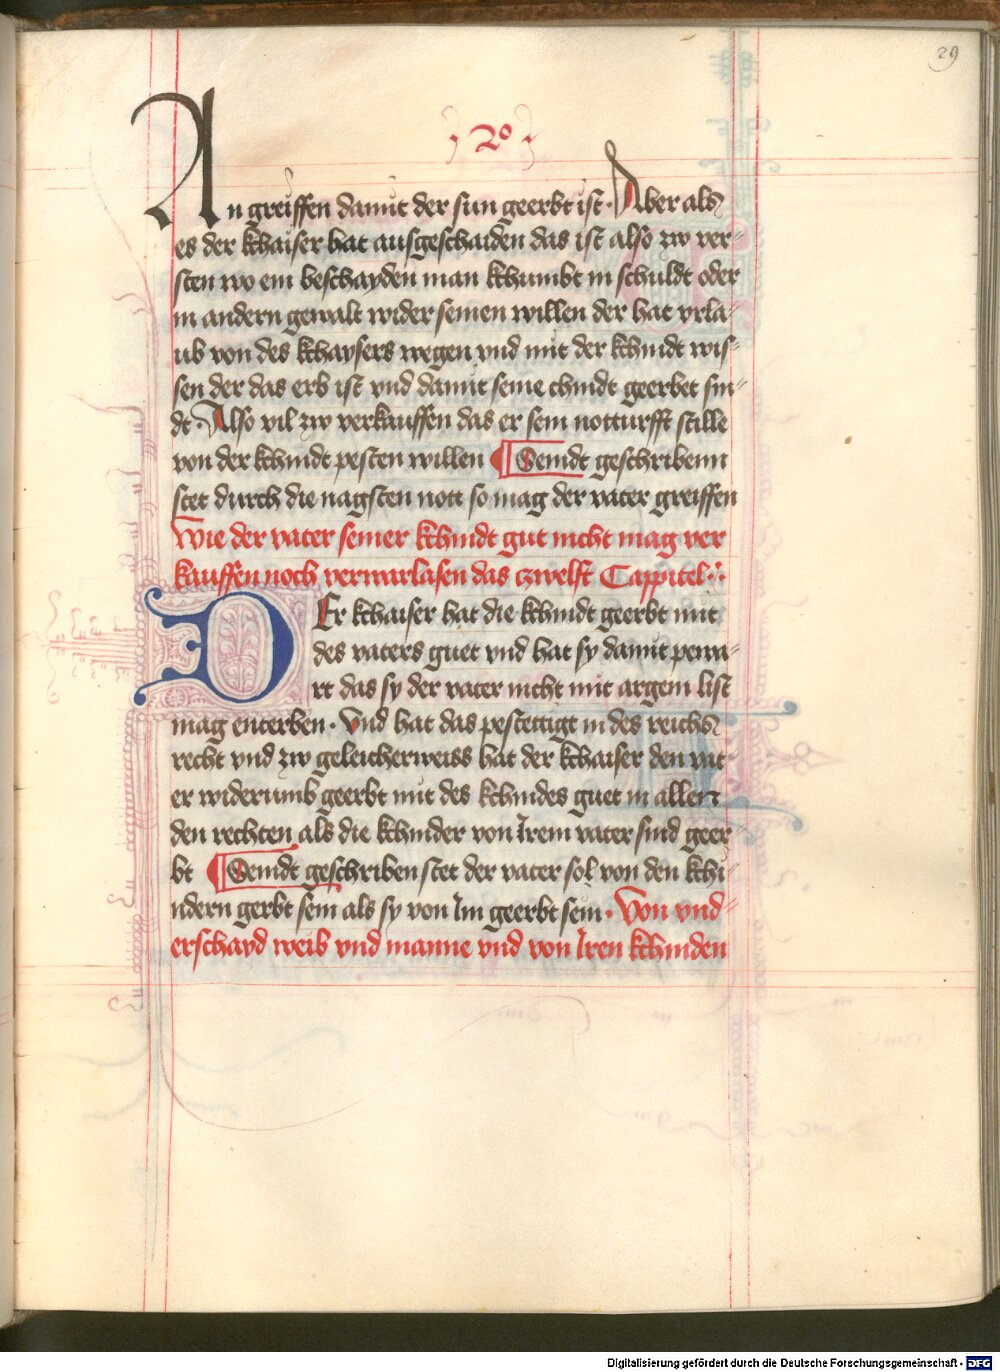 29
20
An greiffen damit der sun geerbt ist · Aber als
es der khaiser hat ausgeschaiden das ist also zw ver-
sten wo ein beschayden man khumbt in schuldt oder
in andern gewalt wider seinen willen der hat vrla-
ub von des khaysers wegen vnd mit der khindt wis-
sen der das erb ist vnd damit seine chindt geerbet sin-
dt · Also vil zw verkauffen das er sein notturfft stille
von der khindt pesten willen Seindt geschribenn
stet durch die nagsten nott so mag der vater greiffen
Wie der vater seiner khindt gut nicht mag ver
kauffen noch verwarlasen das czwelft Cappitel
DEr khaiser hat die khindt geerbt mit
des vaters guet vnd hat sy damit pewa-
rt das sy der vater nicht mit argem list
mag enterben · Vnd hat das pestettigt in des reichs
recht vnd zw geleicherweiss hat der khaiser den vat
er widerumb geerbt mit des khindes guet in allen
den rechten als die khinder von Irem vater sind geer
bt Seindt geschriben stet der vater sol von den khi-
ndern gerbt sein als sy von Im geerbt sein · Von vnd-
erschayd weib vnd manne vnd von Iren khinden
Digitalisierung gefördert durch die Deutsche Forschungsgemeinschaft - DFG